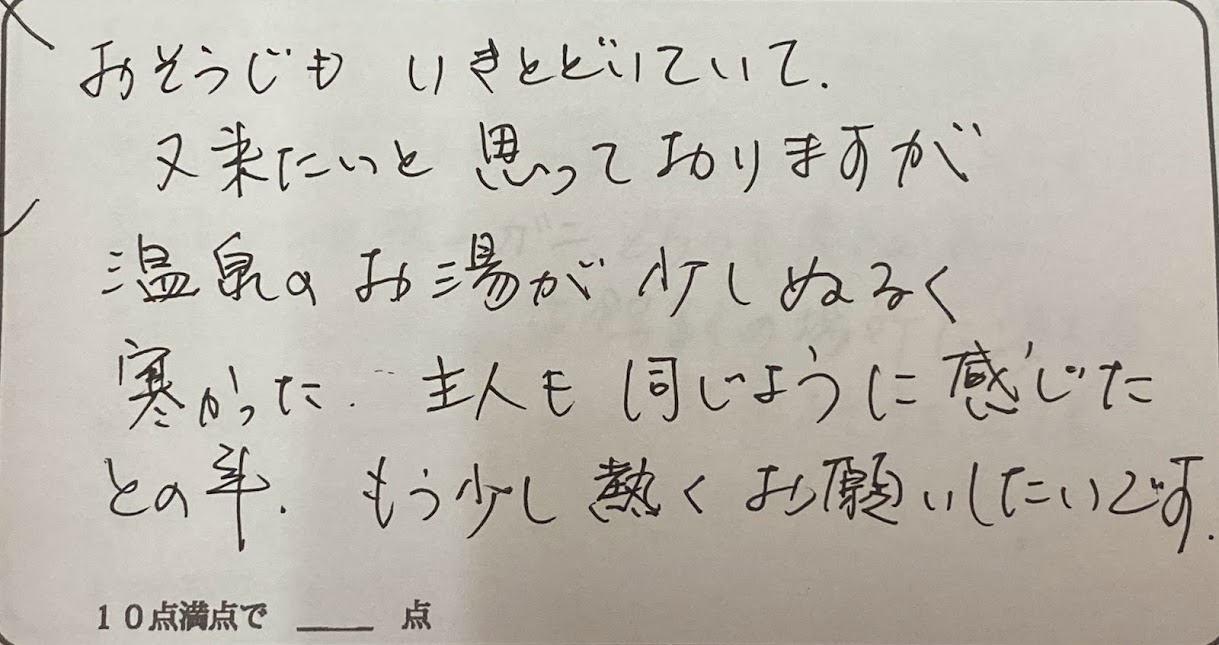 おそうじも いきとどいていて.
又来たいと 思っております が
温泉の お湯が 少しぬるく
寒かった. 主人も 同じように感じた
との事. もう少し 熱く お願いしたいです.
10点満点で ____ 点